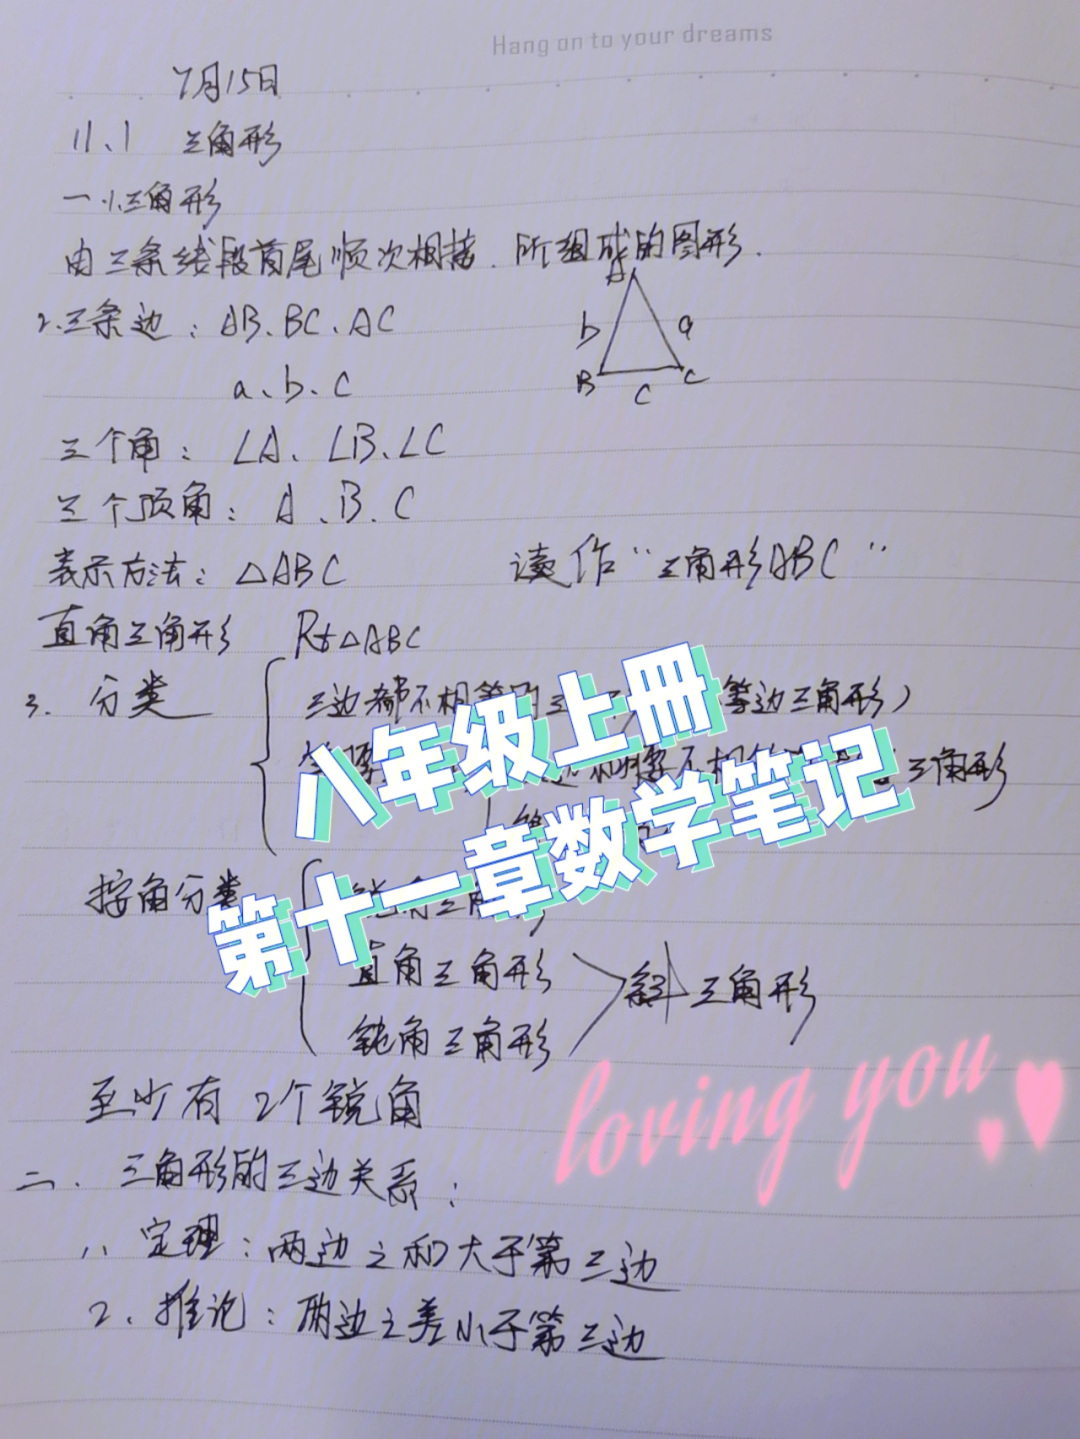 Hang on to your dreams
7月15日
11.1 三角形
一 1.三角形
由三条线段首尾顺次相接.所组成的图形.
2.三条边：AB、BC、AC
a、b、c
A
b a
B C
c
三个角：∠A、∠B、∠C
三个顶角：A、B、C
表示方法：△ABC 读作“三角形ABC”
直角三角形 Rt△ABC
3. 分类 三边都不相等的三 等边三角形）
和腰不相等 三角形
八年级上册
第十一章数学笔记
按角分类
直角三角形 斜三角形
钝角三角形
至少有2个锐角
loving you
二.三角形的三边关系：
1、定理：两边之和大于第三边
2.推论：两边之差小于第三边